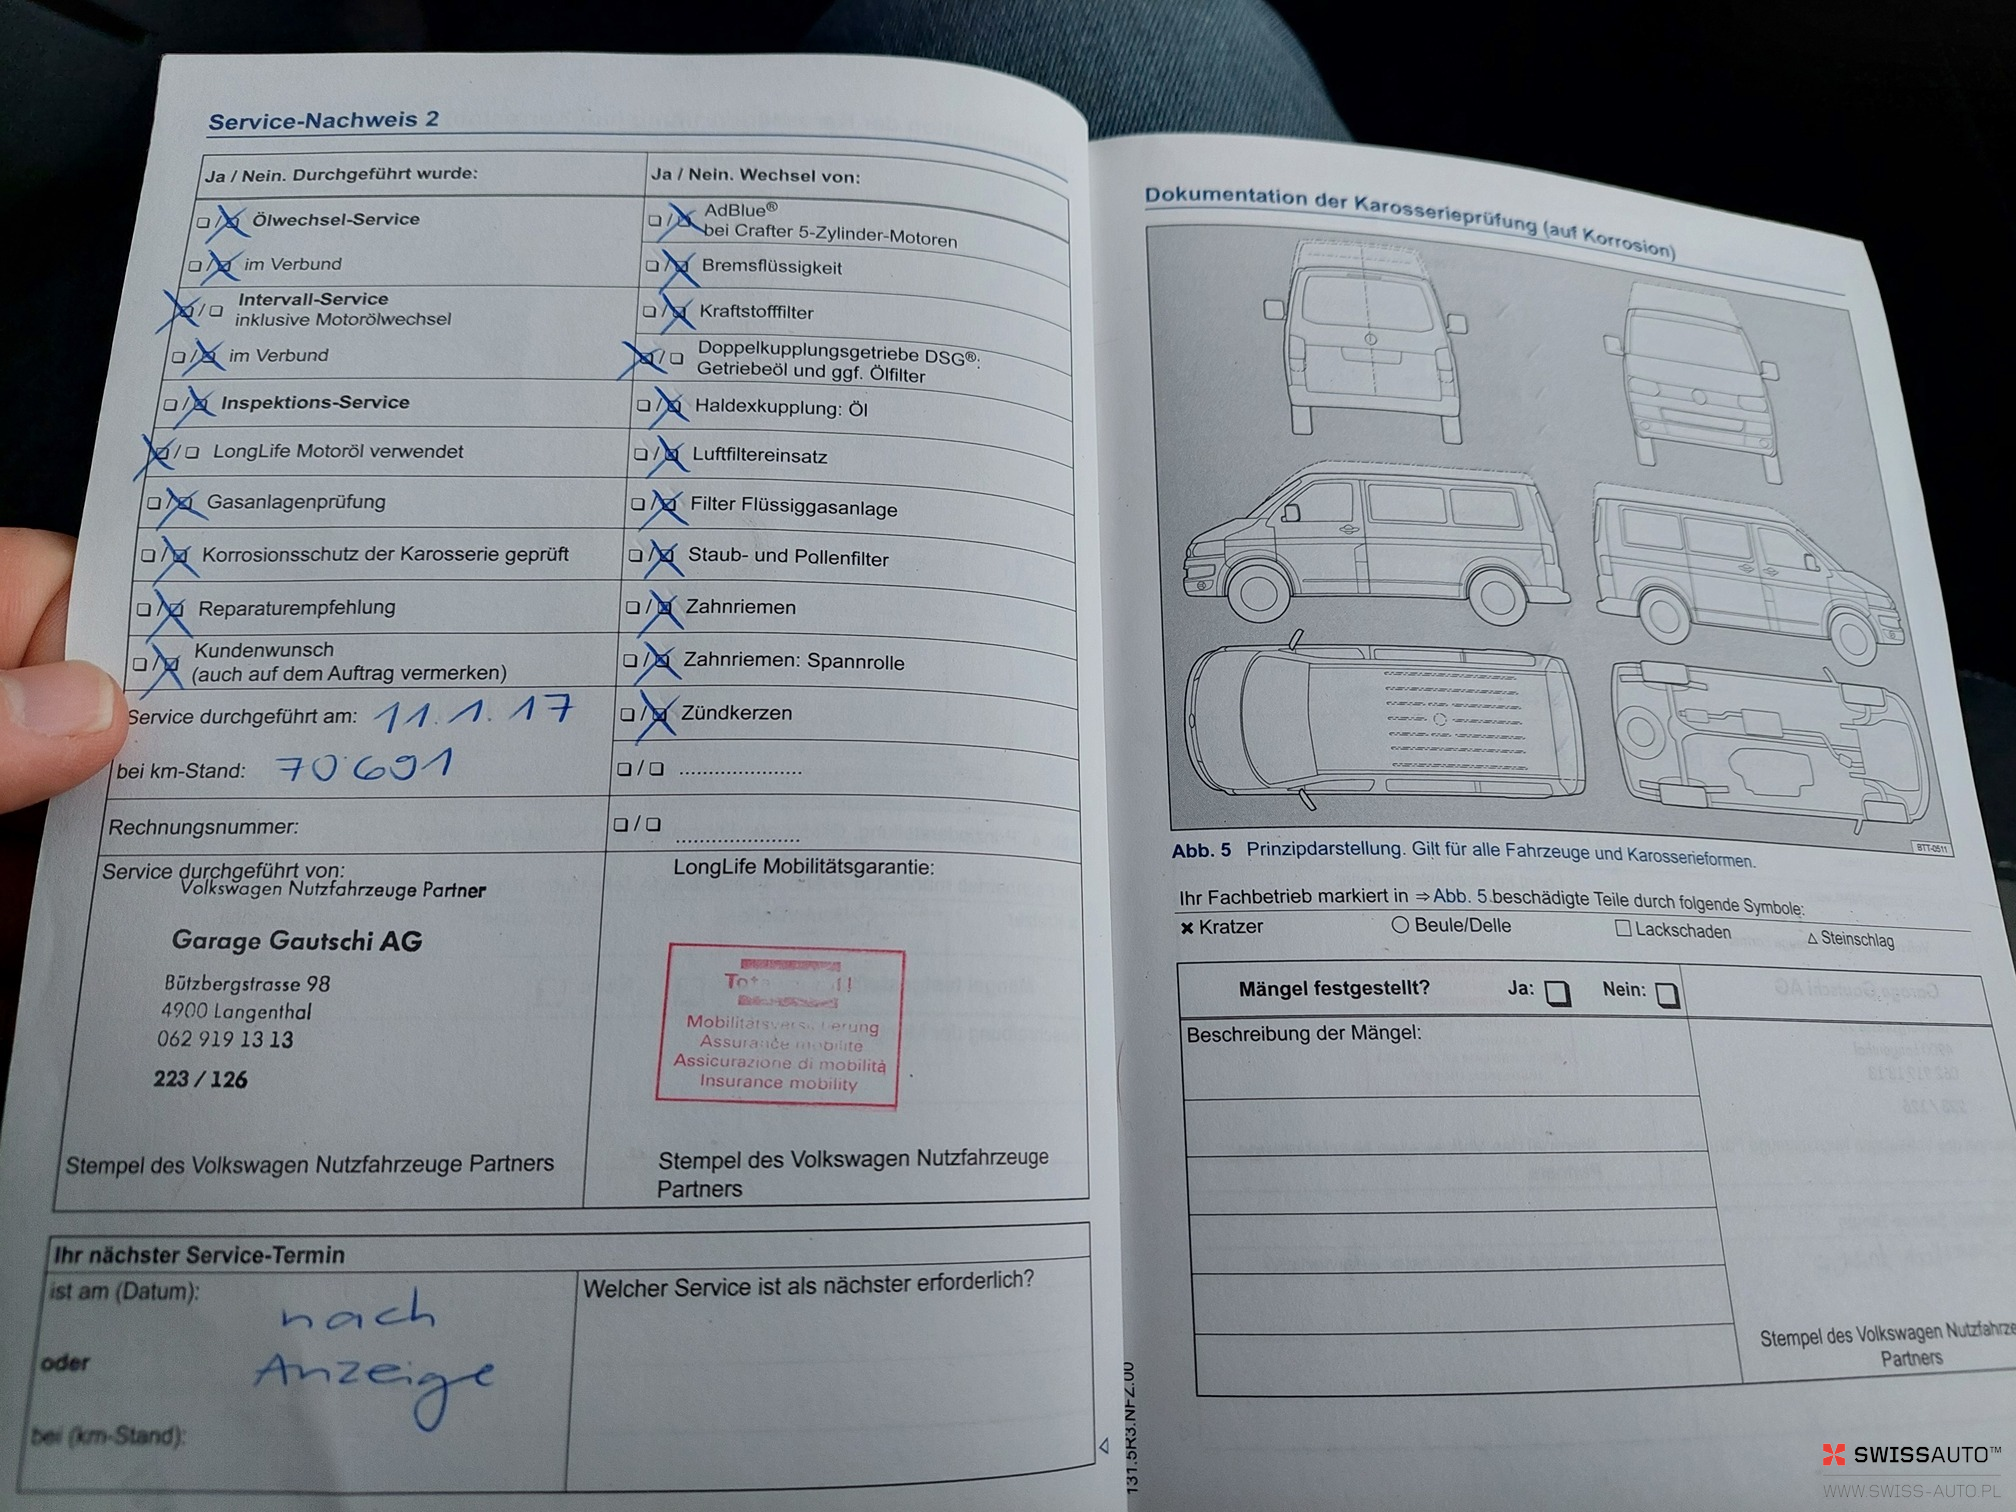 Service-Nachweis 2
Ja / Nein. Durchgeführt wurde:
Ölwechsel-Service
im Verbund
Intervall-Service
inklusive Motorölwechsel
im Verbund
Inspektions-Service
LongLife Motoröl verwendet
Gasanlagenprüfung
Korrosionsschutz der Karosserie geprüft
Reparaturempfehlung
Kundenwunsch
(auch auf dem Auftrag vermerken)
Service durchgeführt am: 11.1.17
bei km-Stand: 70'691
Rechnungsnummer:
Service durchgeführt von:
Volkswagen Nutzfahrzeuge Partner
Garage Gautschi AG
Bützbergstrasse 98
4900 Langenthal
062 919 13 13
223 / 126
Stempel des Volkswagen Nutzfahrzeuge Partners
Ja / Nein. Wechsel von:
AdBlue®
bei Crafter 5-Zylinder-Motoren
Bremsflüssigkeit
Kraftstofffilter
Doppelkupplungsgetriebe DSG®:
Getriebeöl und ggf. Ölfilter
Haldexkupplung: Öl
Luftfiltereinsatz
Filter Flüssiggasanlage
Staub- und Pollenfilter
Zahnriemen
Zahnriemen: Spannrolle
Zündkerzen
LongLife Mobilitätsgarantie:
Mobilitätsversicherung
Assurance mobilité
Assicurazione di mobilità
Insurance mobility
Stempel des Volkswagen Nutzfahrzeuge
Partners
Ihr nächster Service-Termin
ist am (Datum):
nach
oder
Anzeige
bei (km-Stand):
Welcher Service ist als nächster erforderlich?
131.5R3.NFZ.00
Dokumentation der Karosserieprüfung (auf Korrosion)
BTT-0511
Abb. 5 Prinzipdarstellung. Gilt für alle Fahrzeuge und Karosserieformen.
Ihr Fachbetrieb markiert in ⇒ Abb. 5 beschädigte Teile durch folgende Symbole:
✖ Kratzer ○ Beule/Delle □ Lackschaden △ Steinschlag
Mängel festgestellt? Ja: Nein:
Beschreibung der Mängel:
Stempel des Volkswagen Nutzfahrze
Partners
SWISSAUTO™
WWW.SWISS-AUTO.PL